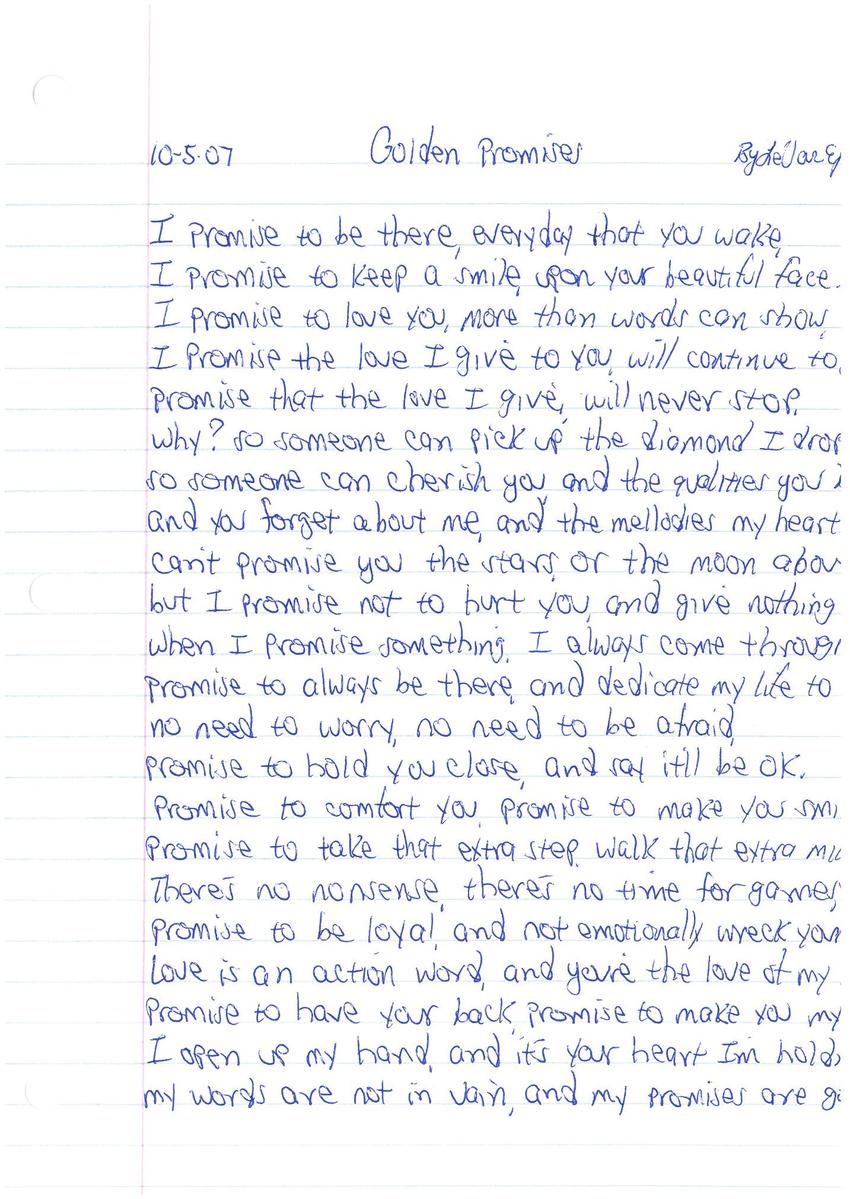 10-5-07 Golden Promises By
I promise to be there, everyday that you wake,
I promise to keep a smile, upon your beautiful face.
I promise to love you, more than words can show,
I promise the love I give to you, will continue to
promise that the love I give, will never stop.
Why? so someone can pick up the diamond I
so someone can cherish you, and the qualities you
and you forget about me, and the mellodies my heart
can't promise you the stars, or the moon
but I promise not to hurt you, and give nothing
When I promise something, I always come
promise to always be there, and dedicate my life to
no need to worry, no need to be afraid,
promise to hold you close, and say it'll be OK.
Promise to comfort you, promise to make you
promise to take that extra step, walk that extra
There's no nonsense, there's no time for games,
promise to be loyal, and not emotionally wreck
Love is an action word, and you're the love of my
Promise to have your back, promise to make you my
I open up my hand, and it's your heart I'm
my words are not in vain, and my promises are